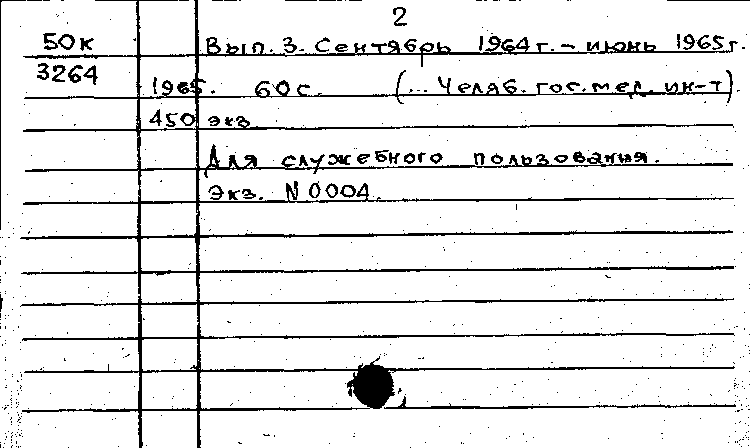 2
50к Вып. 3. Сентябрь 1964 г. – июнь 1965 г.
3264
1965. 60 с. (... Челяб. гос. мед. ин-т).
450 экз.
Для служебного пользования.
Экз. N 0004.